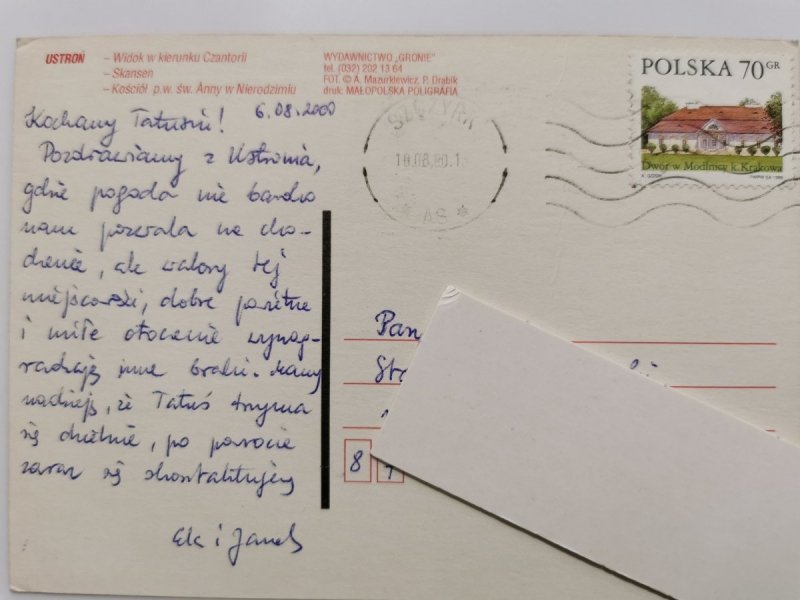 USTROŃ – Widok w kierunku Czantorii
– Skansen
– Kościół p.w. św. Anny w Nierodzimiu
WYDAWNICTWO „GRONIE”
tel. (032) 202 13 64
FOT. © A. Mazurkiewicz, P. Drabik
druk: MAŁOPOLSKA POLIGRAFIA
POLSKA 70 GR
Dwór w Modlnicy k. Krakowa
SZCZYRK
10.08.00.1
* AS *
6.08.2000
Kochany Tatusiu!
Pozdrawiamy z Ustronia,
gdzie pogoda nie bardzo
nam pozwala na cho-
dzenie, ale walory tej
miejscowości, dobre
i miłe otoczenie wynag-
radzają inne braki. Mamy
nadzieję, że Tatuś trzyma
się dzielnie, po powrocie
zaraz się skontaktujemy
Ela i Janek
Pan
8